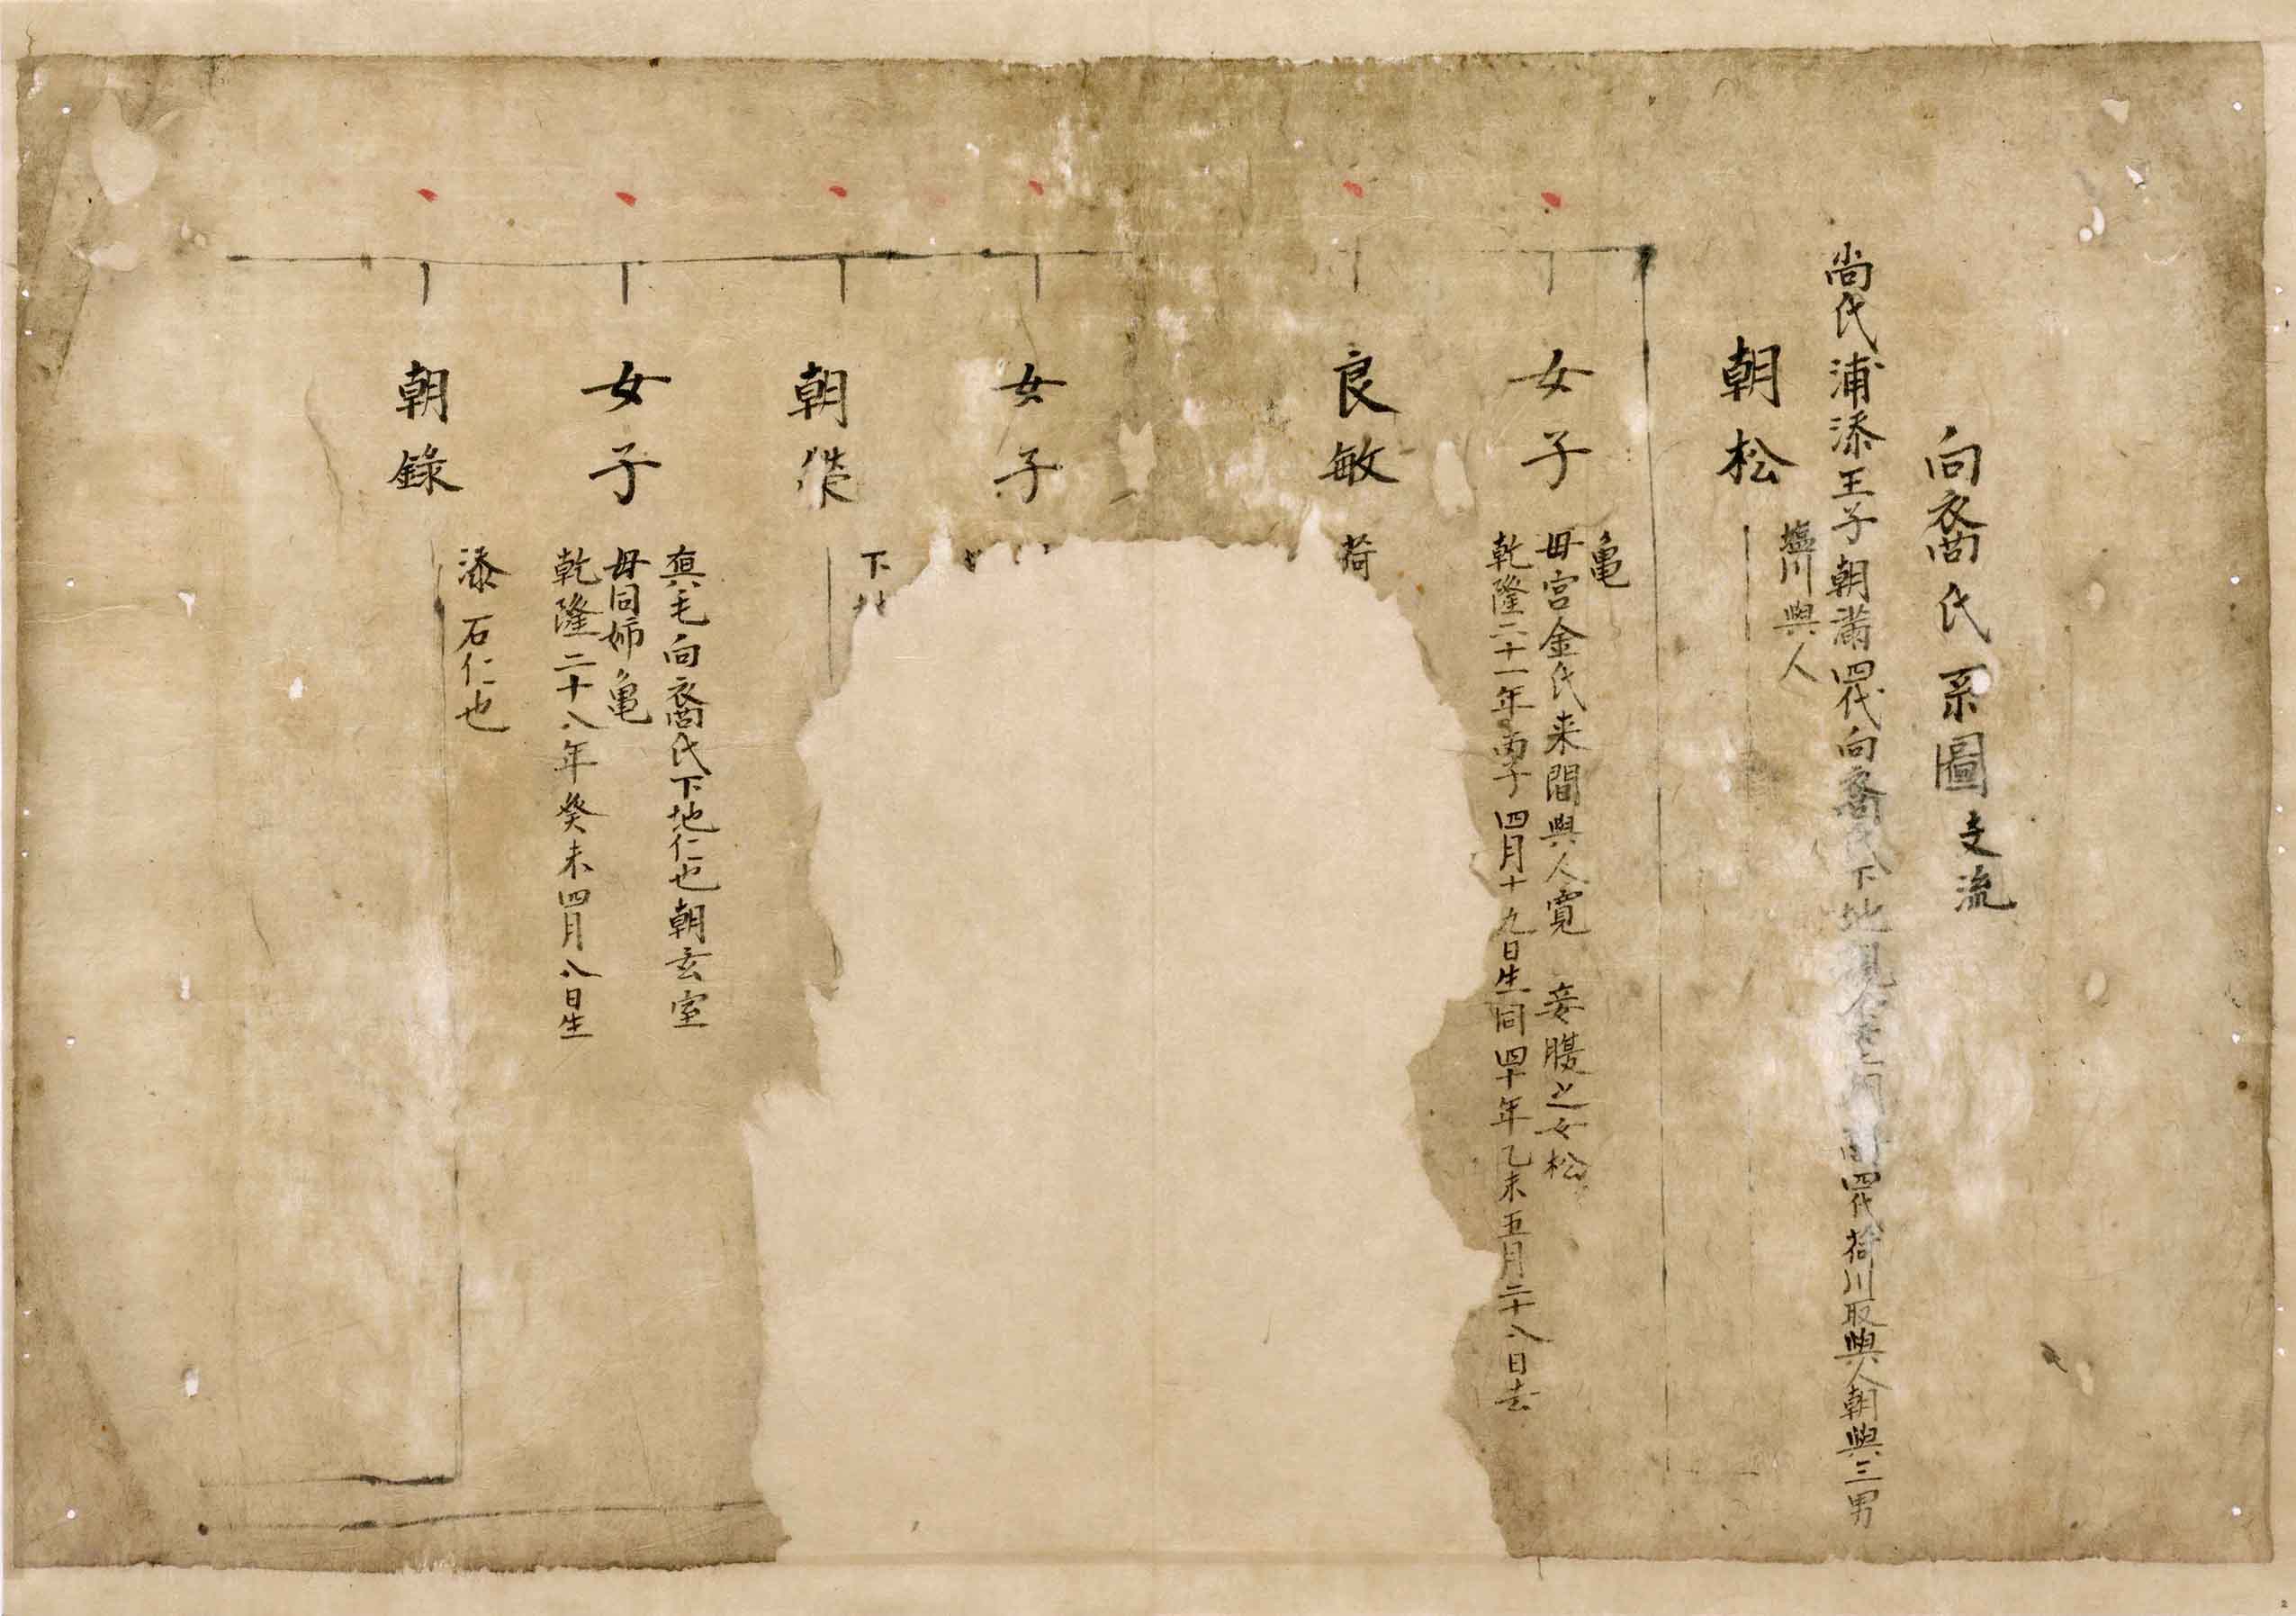 向裔氏系圖支流
尚氏浦添王子朝滿四代向裔氏下地親 四代荷川取與人朝與三男
朝松
塩川與人
女子
亀
母宮金氏来間與人寛 妾腹之女松
乾隆二十一年丙子四月十九日生同四十年乙未五月二十八日去
良敏
荷
女子
朝傑
下
女子
真毛向裔氏下地仁也朝玄室
母同姉亀
乾隆二十八年癸未四月八日生
朝錄
添石仁也